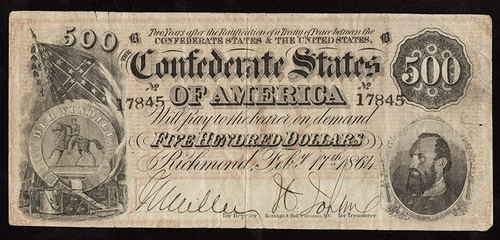 500
B
Two Years after the Ratification of a Treaty of Peace between the
B
CONFEDERATE STATES & THE UNITED STATES,
THE
Confederate States
500
No
17845
OF AMERICA
No
17845
Will pay to the bearer on demand
FIVE HUNDRED DOLLARS
DEO VINDICE
Richmond, Feby. 17th. 1864.
for Register
Keatinge & Ball, Columbia, S.C.
for Treasurer